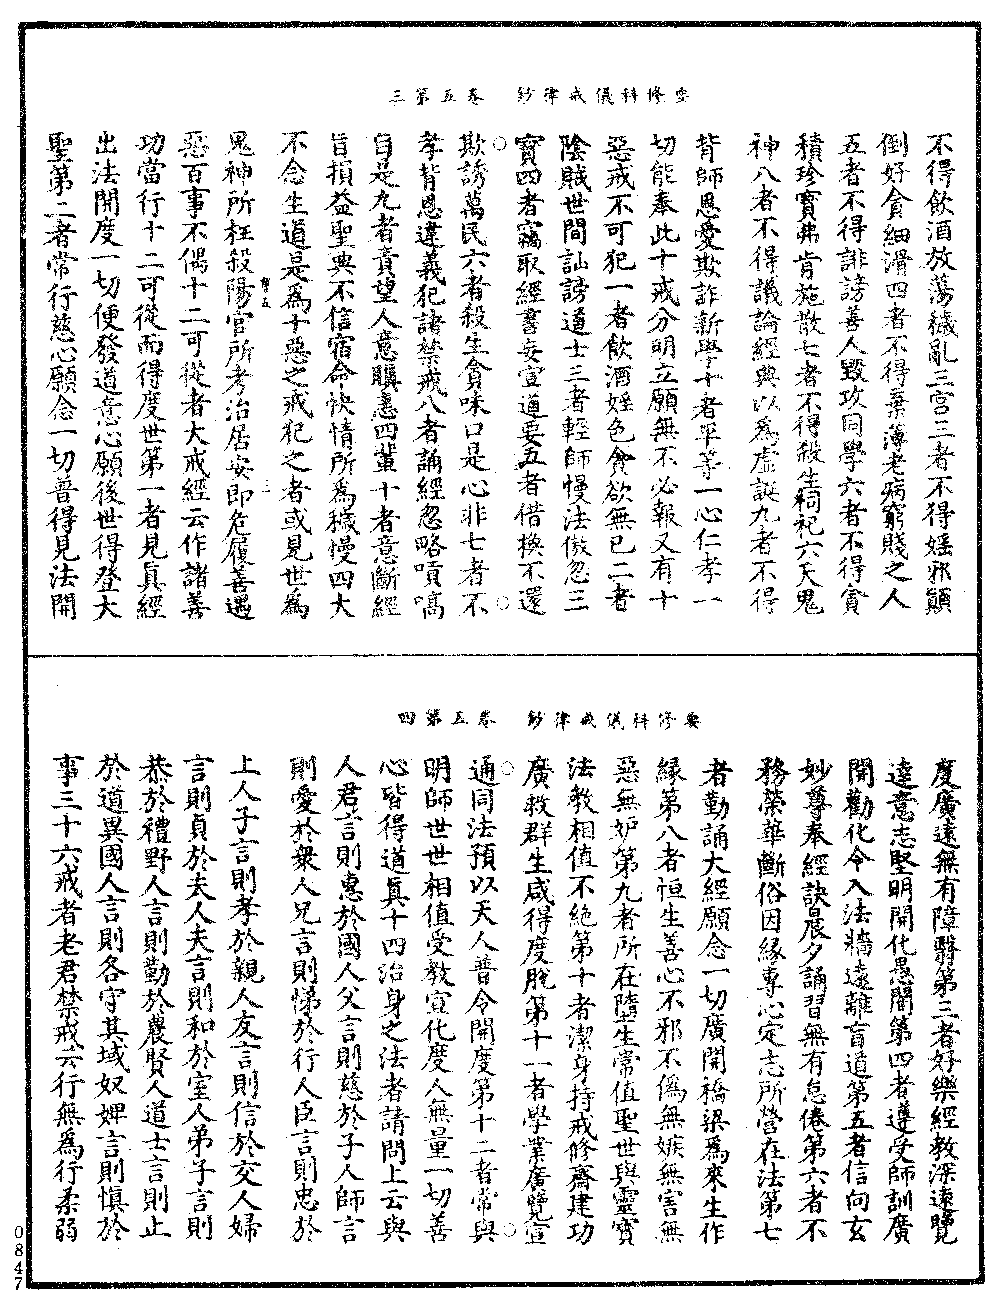 要修科儀戒律鈔　卷五第三
不得飲酒放蕩穢亂三宮三者不得婬邪顛
倒好貪細滑四者不得棄薄老病窮賤之人
五者不得誹謗善人毀攻同學六者不得貪
積珍寶弗肯施散七者不得殺生祠祀六天鬼
神八者不得議論經典以為虛誕九者不得
背師恩愛欺詐新學十者平等一心仁孝一
切能奉此十戒分明立願無不必報又有十
惡戒不可犯一者飲酒婬色貪欲無已二者
陰賊世間訕謗道士三者輕師慢法傲忽三
寶四者竊取經書妄宣道要五者借換不還
欺誘萬民六者殺生貪味口是心非七者不
孝背恩違義犯諸禁戒八者誦經忽略嘖嗃
自是九者責望人意驥恚四輩十者意斷經
旨損益聖典不信宿命快情所為穢慢四大
不念生道是為十惡之戒犯之者或見世為
鬼神所枉殺陽官所考治居安即危履善遇
惡百事不偶十二可從者大戒經云作諸善
功當行十二可從而得度世第一者見真經
出法開度一切便發道意心願後世得登大
聖第二者常行慈心願念一切普得見法開
要修科儀戒律鈔　卷五第四
度廣遠無有障翳第三者好樂經教深遠覽
達意志堅明開化愚闇第四者遵受師訓廣
開勸化令入法牆遠離盲道第五者信向玄
妙尊奉經訣晨夕誦習無有怠倦第六者不
務榮華斷俗因緣專心定志所營在法第七
者勤誦大經願念一切廣開橋梁為來生作
緣第八者恒生善心不邪不偽無嫉無害無
惡無妬第九者所在墮生常值聖世與靈寶
法教相值不絕第十者潔身持戒修齋建功
廣救群生咸得度脫第十一者學業廣覽宣
通同法預以天人普令開度第十二者常與
明師世世相值受教宣化度人無量一切善
心皆得道真十四治身之法者請問上云與
人君言則惠於國人父言則慈於子人師言
則愛於眾人兄言則悌於行人臣言則忠於
上人子言則孝於親人友言則信於交人婦
言則貞於夫人夫言則和於室人弟子言則
恭於禮野人言則勤於農賢人道士言則止
於道異國人言則各守其域奴婢言則慎於
事三十六戒者老君禁戒云行無為行柔弱
0847